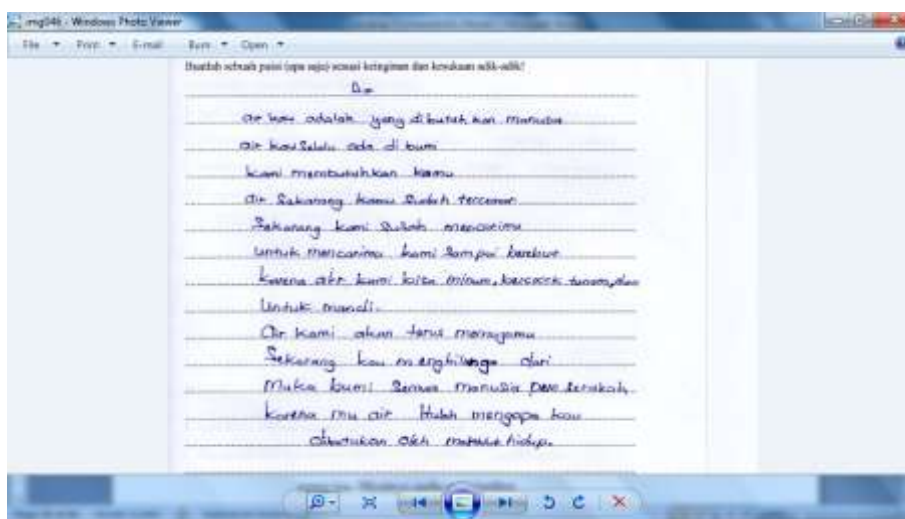 img046 - Windows Photo Viewer
File Print E-mail Burn Open
Buatlah sebuah puisi (apa saja) sesuai keinginan dan kesukaan adik-adik!
air kau adalah yang dibutuh kan manusia
air kau Selalu ada di bumi
kami membutuhkan kamu
air Sakarang kamu Sudah tercemar
Sekarang kami Susah mencarimu
untuk mencarimu kami Sampai
karena air kami bisa minum, bercocok tanam, dan
Untuk mandi.
Air kami akan terus menjagamu
Sekarang kau menghilang dari
Muka bumi Semua manusia
karena mu air Itulah mengapa kau
dibutukan oleh hidup.